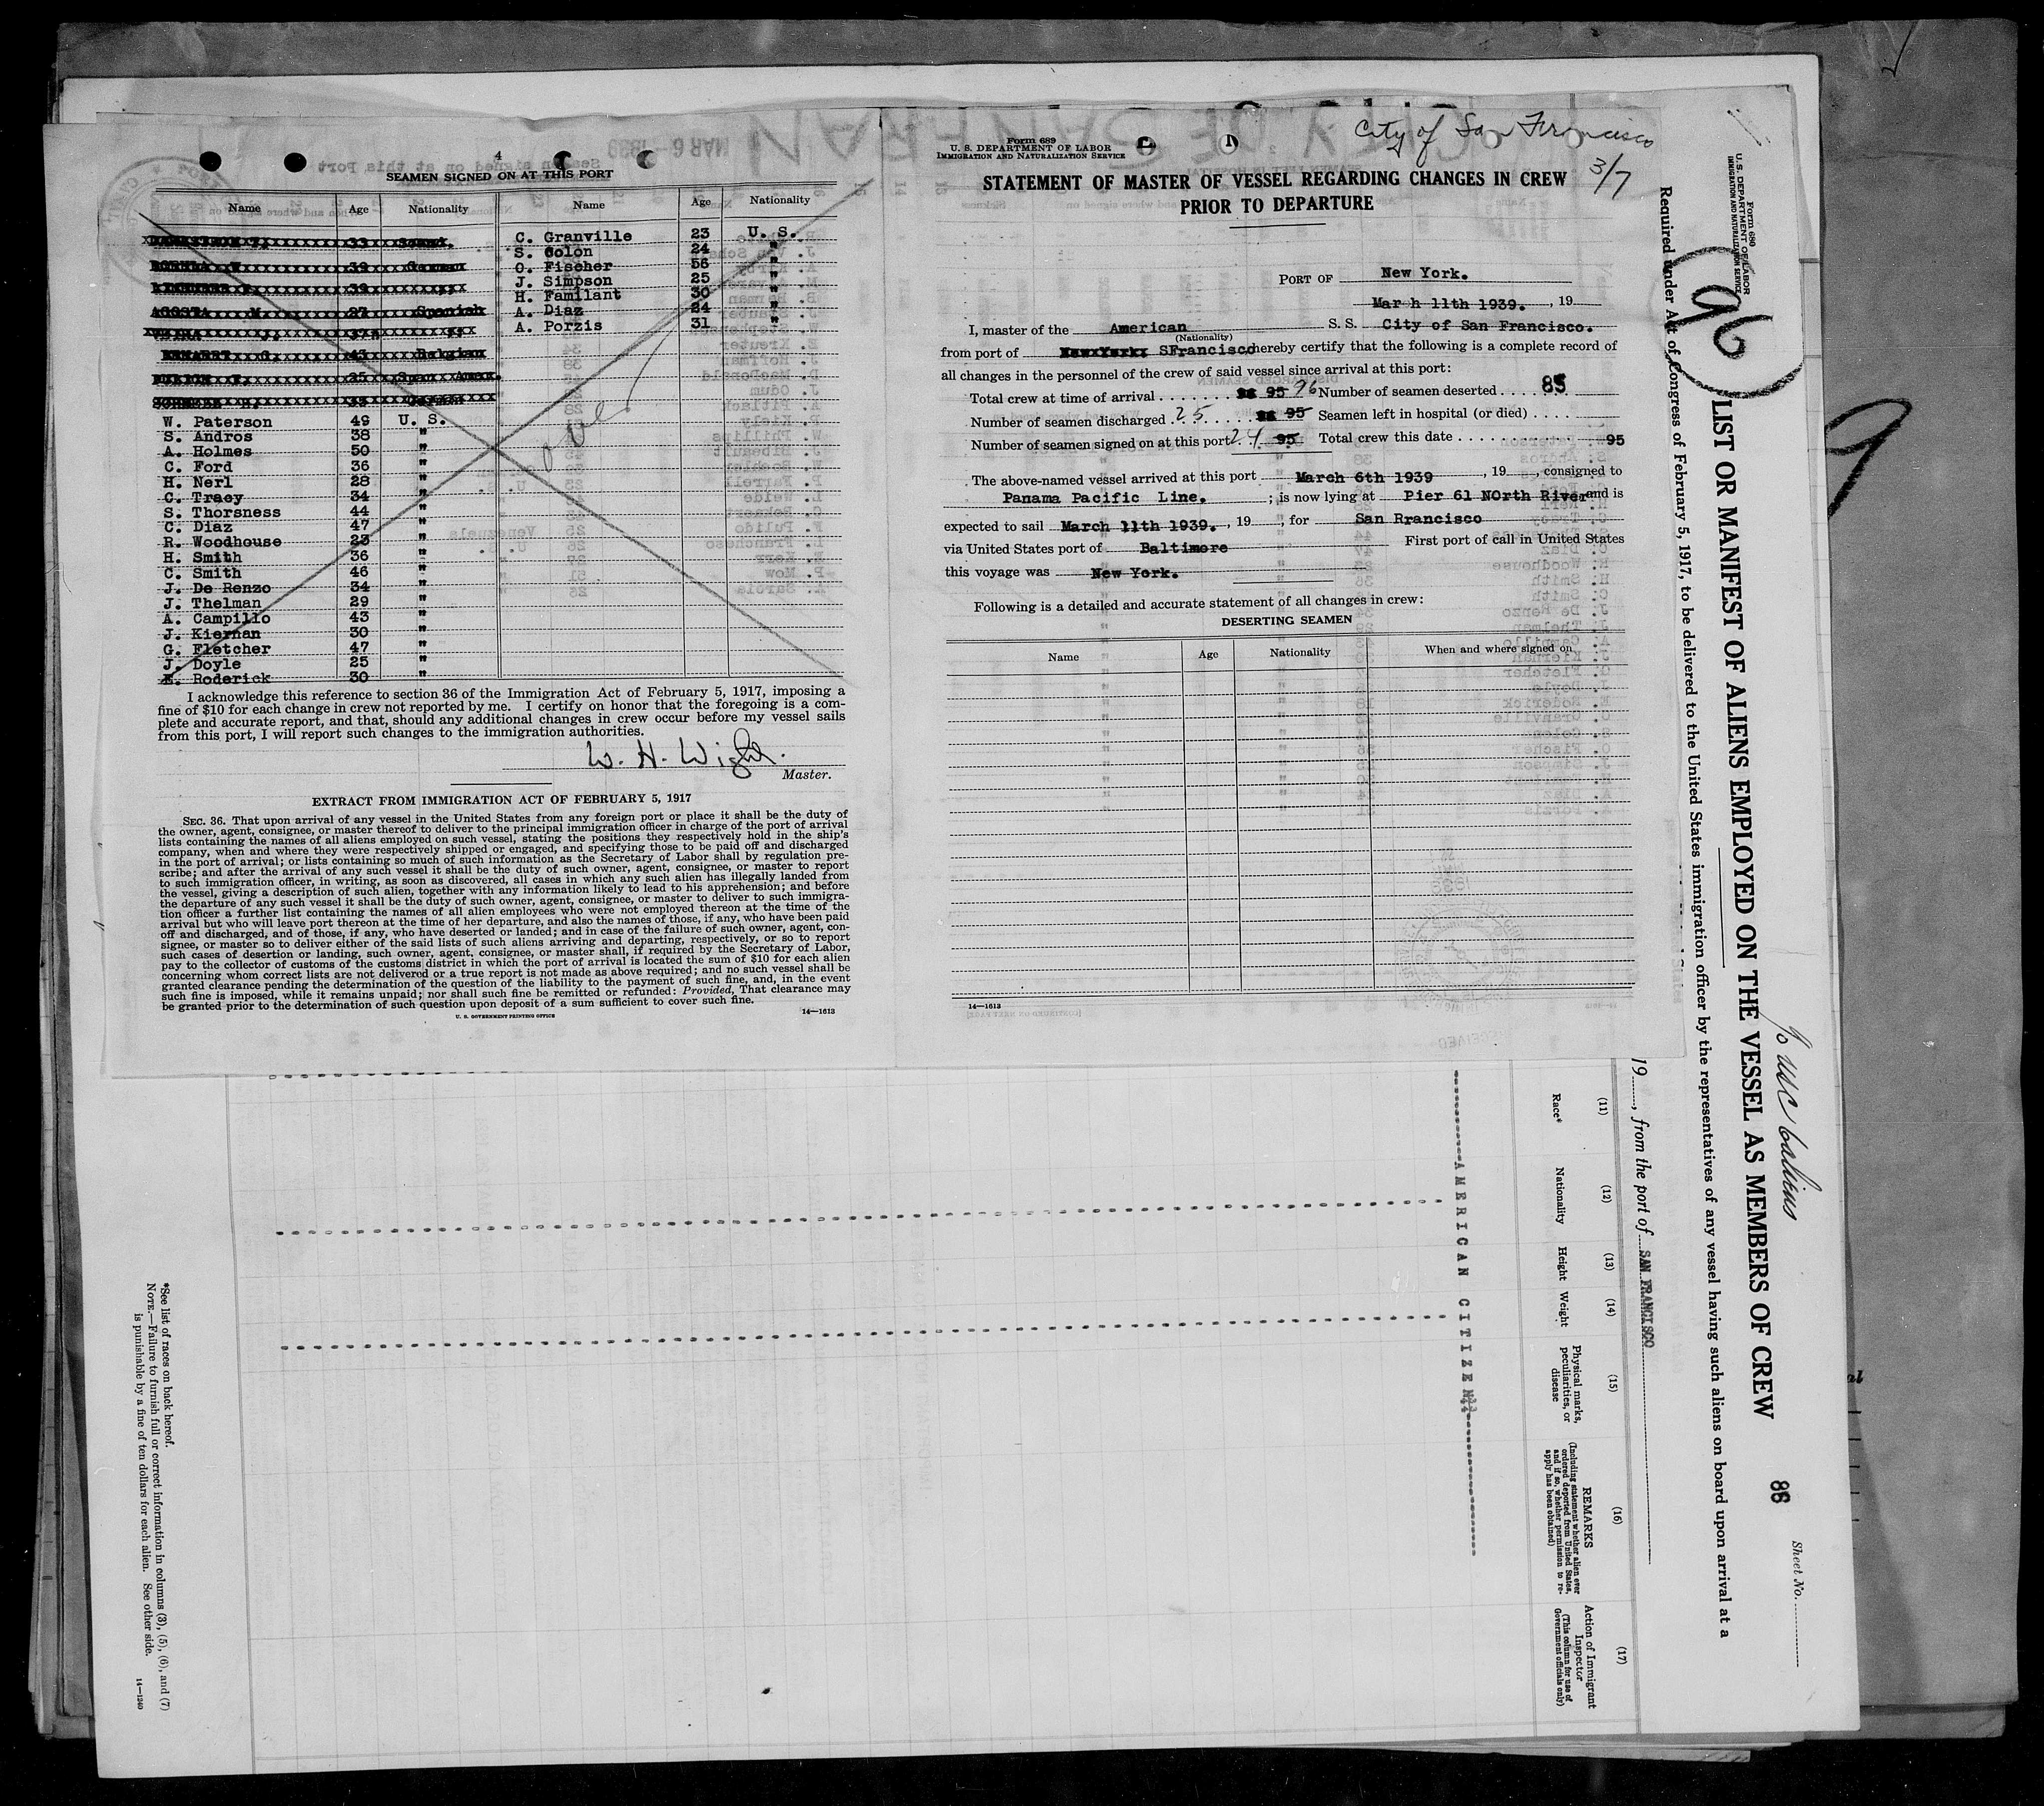 4
SEAMEN SIGNED ON AT THIS PORT
Name Age Nationality Name Age Nationality
33
39 German
39
AGOSTA M. 27 Spanish
37
43 Belgian
25 Span Amer.
33 German
W. Paterson 49 U. S.
S. Andros 38 "
A. Holmes 50 "
C. Ford 36 "
H. Nerl 28 "
C. Tracy 34 "
S. Thorsness 44 "
C. Diaz 47 "
R. Woodhouse 23 "
H. Smith 36 "
C. Smith 46 "
J. De Renzo 34 "
J. Thelman 29 "
A. Campillo 43 "
J. Kiernan 30 "
G. Fletcher 47 "
J. Doyle 25 "
E. Roderick 30 "
C. Granville 23 U. S.
S. Colon 24 "
O. Fischer 56 "
J. Simpson 25 "
H. Familant 30 "
A. Diaz 24 "
A. Porzis 31 "
over
I acknowledge this reference to section 36 of the Immigration Act of February 5, 1917, imposing a
fine of $10 for each change in crew not reported by me. I certify on honor that the foregoing is a com-
plete and accurate report, and that, should any additional changes in crew occur before my vessel sails
from this port, I will report such changes to the immigration authorities.
W. H. Wight.
Master.
EXTRACT FROM IMMIGRATION ACT OF FEBRUARY 5, 1917
SEC. 36. That upon arrival of any vessel in the United States from any foreign port or place it shall be the duty of
the owner, agent, consignee, or master thereof to deliver to the principal immigration officer in charge of the port of arrival
lists containing the names of all aliens employed on such vessel, stating the positions they respectively hold in the ship's
company, when and where they were respectively shipped or engaged, and specifying those to be paid off and discharged
in the port of arrival; or lists containing so much of such information as the Secretary of Labor shall by regulation pre-
scribe; and after the arrival of any such vessel it shall be the duty of such owner, agent, consignee, or master to report
to such immigration officer, in writing, as soon as discovered, all cases in which any such alien has illegally landed from
the vessel, giving a description of such alien, together with any information likely to lead to his apprehension; and before
the departure of any such vessel it shall be the duty of such owner, agent, consignee, or master to deliver to such immigra-
tion officer a further list containing the names of all alien employees who were not employed thereon at the time of the
arrival but who will leave port thereon at the time of her departure, and also the names of those, if any, who have been paid
off and discharged, and of those, if any, who have deserted or landed; and in case of the failure of such owner, agent, con-
signee, or master so to deliver either of the said lists of such aliens arriving and departing, respectively, or so to report
such cases of desertion or landing, such owner, agent, consignee, or master shall, if required by the Secretary of Labor,
pay to the collector of customs of the customs district in which the port of arrival is located the sum of $10 for each alien
concerning whom correct lists are not delivered or a true report is not made as above required; and no such vessel shall be
granted clearance pending the determination of the question of the liability to the payment of such fine, and, in the event
such fine is imposed, while it remains unpaid; nor shall such fine be remitted or refunded: Provided, That clearance may
be granted prior to the determination of such question upon deposit of a sum sufficient to cover such fine.
U. S. GOVERNMENT PRINTING OFFICE 14—1613
Form 689
U. S. DEPARTMENT OF LABOR
IMMIGRATION AND NATURALIZATION SERVICE
City of San Francisco
3/7
STATEMENT OF MASTER OF VESSEL REGARDING CHANGES IN CREW
PRIOR TO DEPARTURE
PORT OF New York.
Mar h 11th 1939. , 19
I, master of the American S. S. City of San Francisco.
(Nationality)
from port of New York; SFrancisco hereby certify that the following is a complete record of
all changes in the personnel of the crew of said vessel since arrival at this port:
Total crew at time of arrival 95 96 Number of seamen deserted 85
Number of seamen discharged 25 95 Seamen left in hospital (or died)
Number of seamen signed on at this port 24 95 Total crew this date 95
The above-named vessel arrived at this port March 6th 1939 , 19 , consigned to
Panama Pacific Line. ; is now lying at Pier 61 NOrth River and is
expected to sail March 11th 1939. , 19 , for San Rrancisco
via United States port of Baltimore First port of call in United States
this voyage was New York.
Following is a detailed and accurate statement of all changes in crew:
DESERTING SEAMEN
Name Age Nationality When and where signed on
14—1613
Form 680
U. S. DEPARTMENT OF LABOR
IMMIGRATION AND NATURALIZATION SERVICE
96
LIST OR MANIFEST OF ALIENS EMPLOYED ON THE VESSEL AS MEMBERS OF CREW
Required under Act of Congress of February 5, 1917, to be delivered to the United States immigration officer by the representatives of any vessel having such aliens on board upon arrival at a
90 USC 6 aliens
86
Sheet No.
9
19 , from the port of SAN FRANCISCO
(11) (12) (13) (14) (15) (16) (17)
Race*
Nationality
Height
Weight
Physical marks, peculiarities, or disease
REMARKS
(Including statement whether alien ever ordered deported from United States, and if so, whether permission to re-apply has been obtained)
Action of Immigrant Inspector
(This column for use of Government officials only)
AMERICAN CITIZEN
*See list of races on back hereof.
NOTE.—Failure to furnish full or correct information in columns (3), (5), (6), and (7)
is punishable by a fine of ten dollars for each alien. See other side.
14—1240